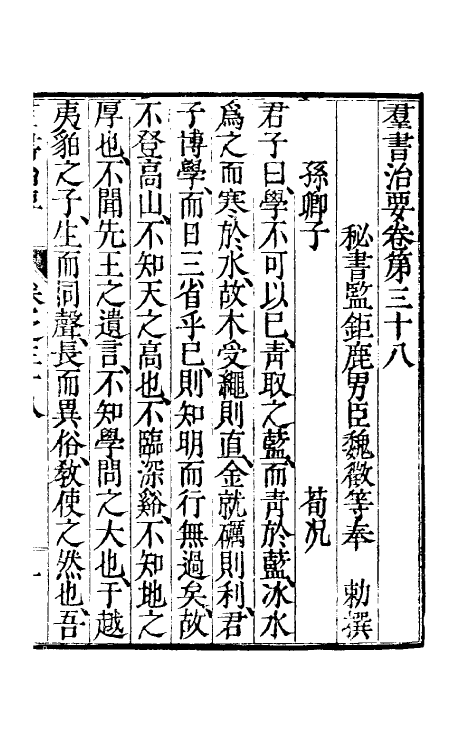 羣書治要卷第三十八
秘書監鉅鹿男臣魏徵等奉 勅撰
孫卿子 荀况
君子曰、學不可以已、靑取之藍、而靑於藍、冰水
爲之而寒於水、故木受繩則直、金就礪則利、君
子博學、而日三省乎已、則知明而行無過矣、故
不登高山、不知天之高也、不臨深谿、不知地之
厚也、不聞先王之遺言、不知學問之大也、于越
夷貊之子、生而同聲、長而異俗、敎使之然也、吾